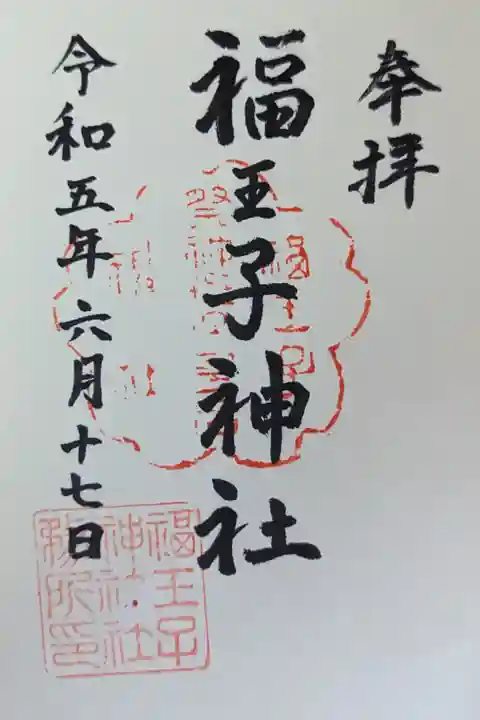 奉拝
福王子神社
令和五年六月十七日
福王子
神社社
務所印